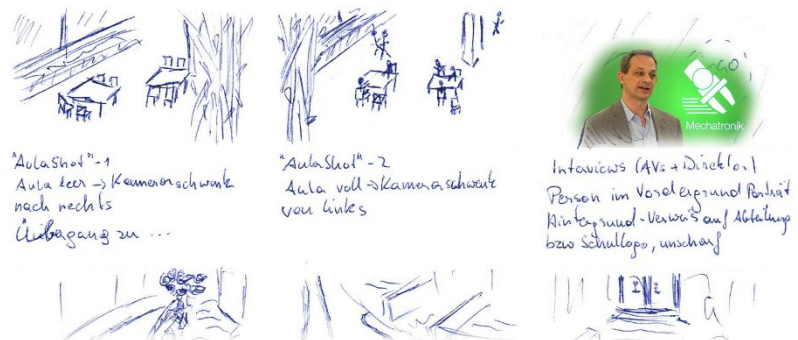 "AulaShot"-1
Aula leer → Kameraschwenk
nach rechts
Übergang zu ...
"AulaShot"-2
Aula voll → Kameraschwenk
von links
Mechatronik
Interviews (AVs + Direktor)
Person im Vordergrund Porträt
Hintergrund-Verweis auf Abteilung
bzw Schullogo, unscharf